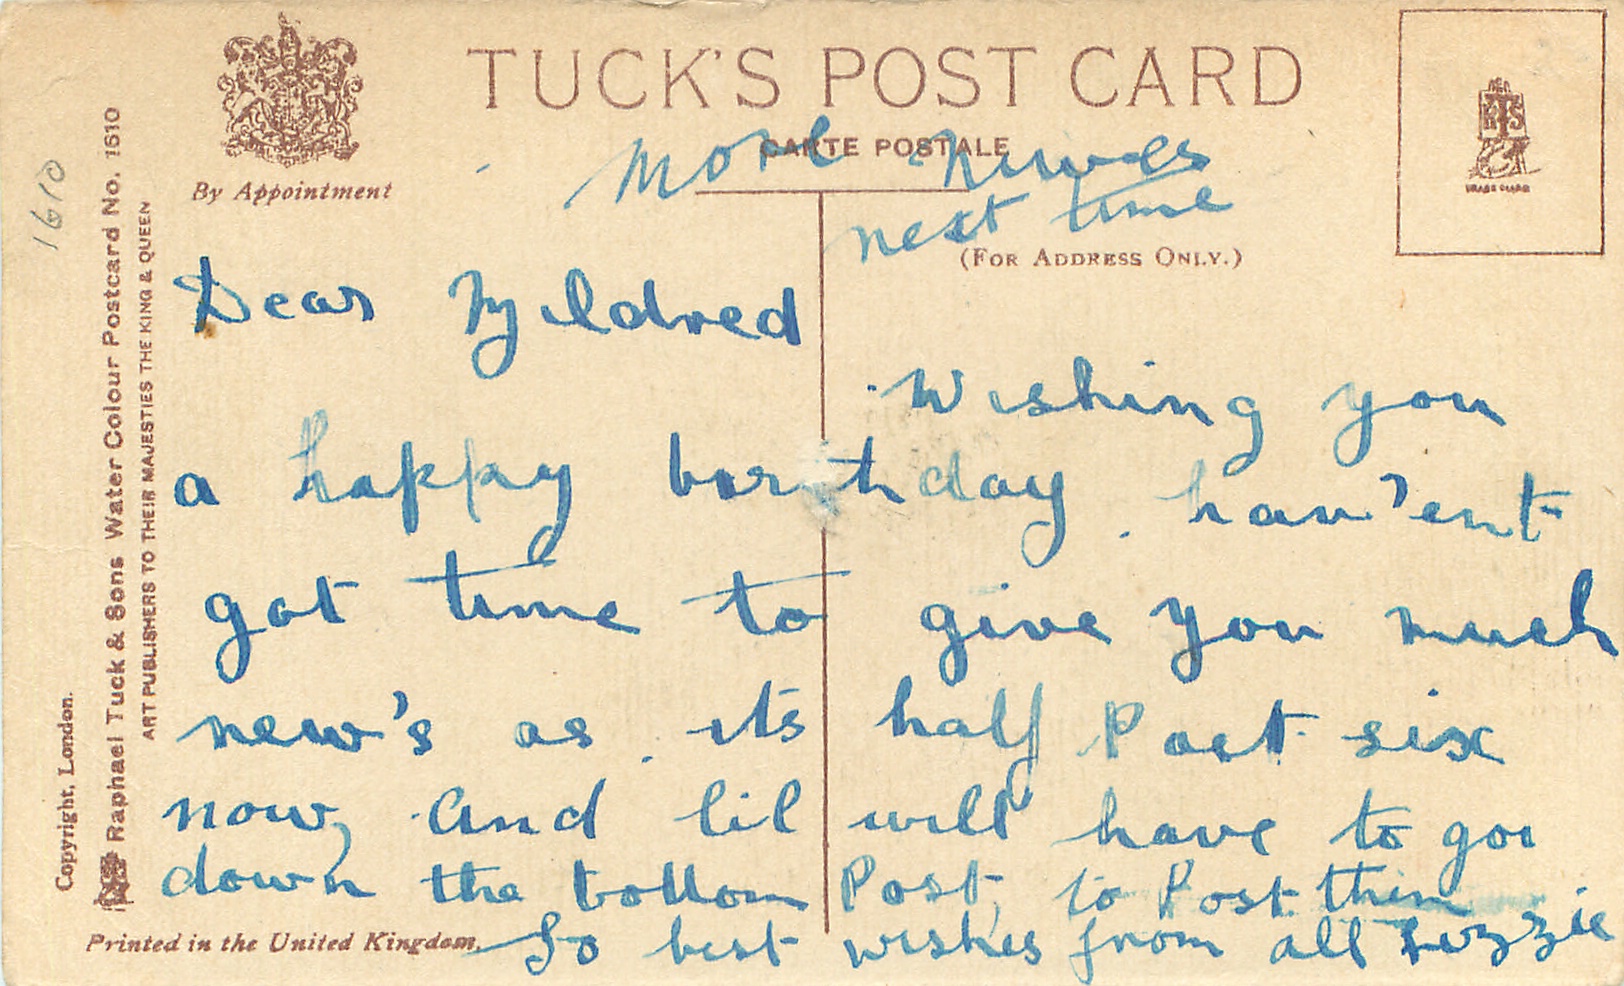 TUCK'S POST CARD
CARTE POSTALE
By Appointment
(FOR ADDRESS ONLY.)
RTS
TRADE MARK
1610
Copyright, London.
Raphael Tuck & Sons Water Colour Postcard No. 1610
ART PUBLISHERS TO THEIR MAJESTIES THE KING & QUEEN
Printed in the United Kingdom.
More
next time
Dear Mildred
Wishing you
a happy birthday hav'ent
got time to give you much
new's as its half Past six
now, And lil will have to go
down the bottom Post, to Post them
So best wishes from all Lizzie